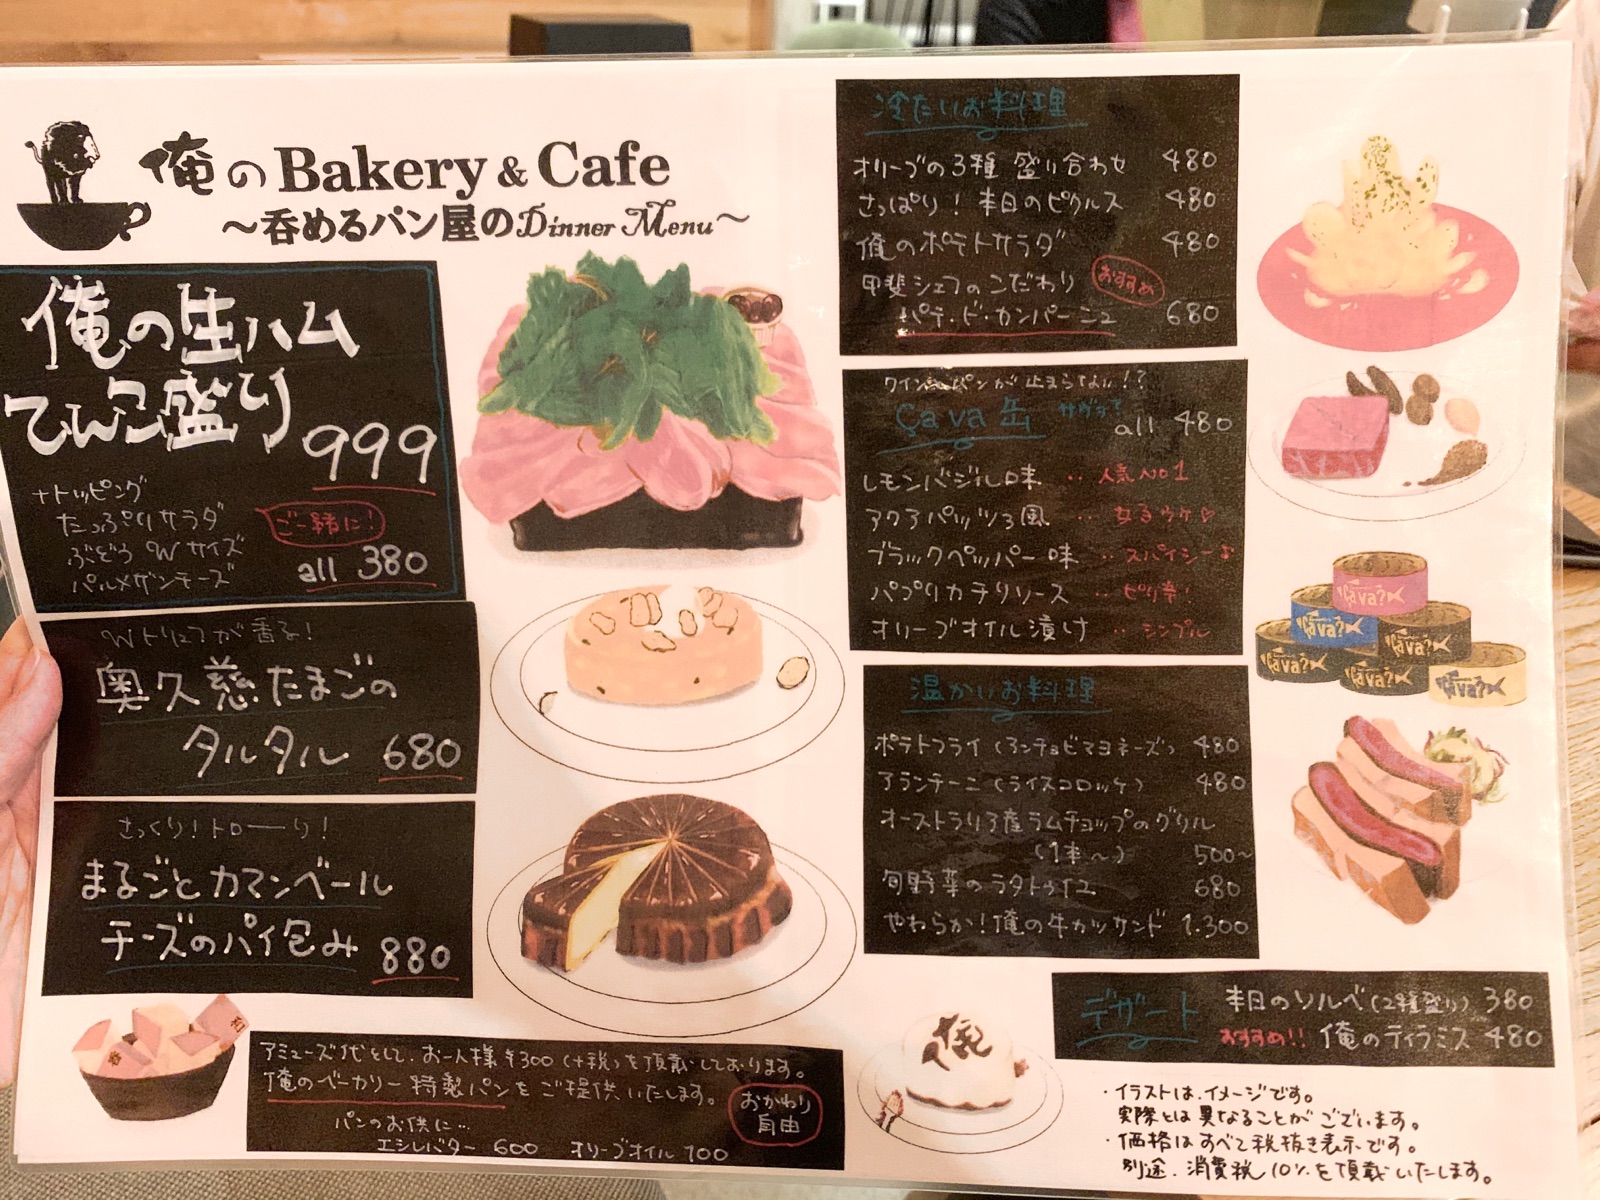 俺のBakery & Cafe
～呑めるパン屋のDinner Menu～
俺の生ハム
てんこ盛り 999
+トッピング
たっぷりサラダ
ぶどう Wサイズ
パルメザンチーズ
ご一緒に!
all 380
Wトリュフが香る!
奥久慈たまごの
タルタル 680
さっくり!トローーり!
まるごとカマンベール
チーズのパイ包み 880
アミューズ代として、お一人様¥300(+税)を頂戴しております。
俺のベーカリー特製パンをご提供いたします。
おかわり
自由
パンのお供に…
エシレバター 600 オリーブオイル 100
冷たいお料理
オリーブの3種 盛り合わせ 480
さっぱり!本日のピクルス 480
俺のポテトサラダ 480
甲斐シェフのこだわり おすすめ
パテ・ド・カンパーニュ 680
ワインとパンが止まらない!?
Ça va 缶 サヴァ? all 480
レモンバジル味 ‥人気No1
アクアパッツァ風 ‥女子ウケ♡
ブラックペッパー味 ‥スパイシー♪
パプリカチリソース ‥ピリ辛!
オリーブオイル漬け ‥シンプル
温かいお料理
ポテトフライ(アンチョビマヨネーズ) 480
アランチーニ(ライスコロッケ) 480
オーストラリア産ラムチョップのグリル
(1本～) 500～
旬野菜のラタトゥイユ 680
やわらか!俺の牛カツサンド 1.300
Ça va?
Ça va?
Ça va?
Ça va?
Ça va?
Ça va?
俺
デザート
本日のソルベ(2種盛り) 380
おすすめ!! 俺のティラミス 480
・イラストは、イメージです。
実際とは異なることがございます。
・価格はすべて税抜き表示です。
別途、消費税10%を頂戴いたします。